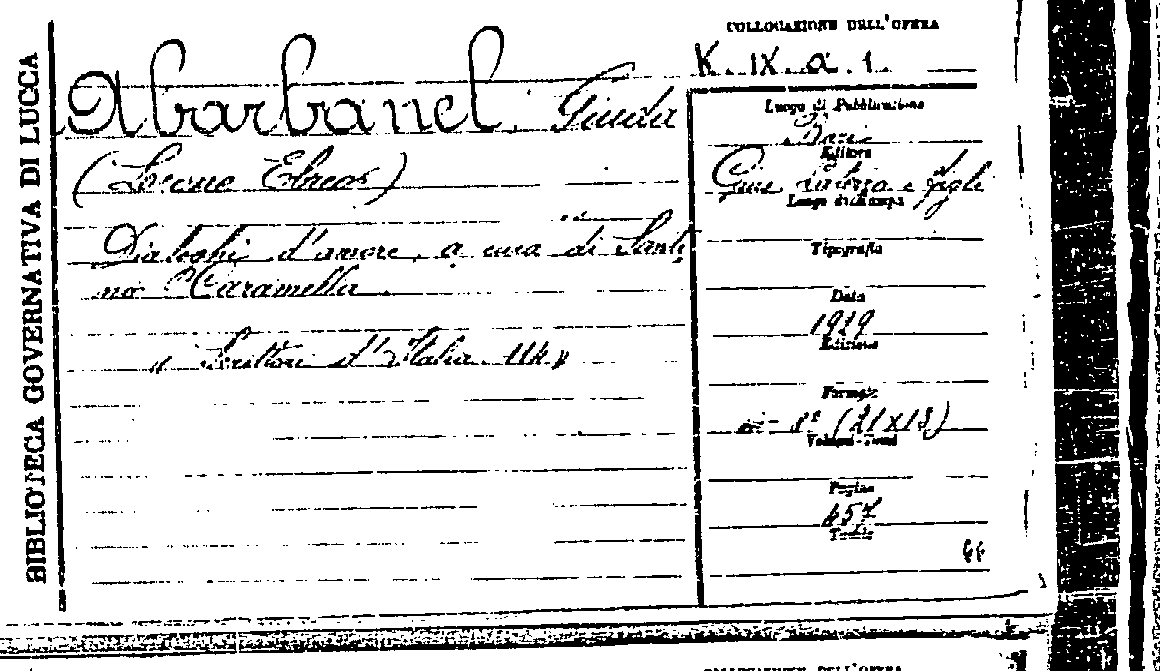 BIBLIOTECA GOVERNATIVA DI LUCCA
Abarbanel, Giuda
(Leone Ebreo)
Dialoghi d'amore, a cura di Santi
no Caramella.
« Scrittori d'Italia 114 »
COLLOCAZIONE DELL'OPERA
K. IX. a. 1.
Luogo di Pubblicazione
Bari
Editore
Gius. Laterza e figli
Luogo di stampa
Tipografia
Data
1929
Edizione
Formato
in-8º (21x13)
Volumi-Tomi
Pagine
457
COLLOCAZIONE DELL'OPERA